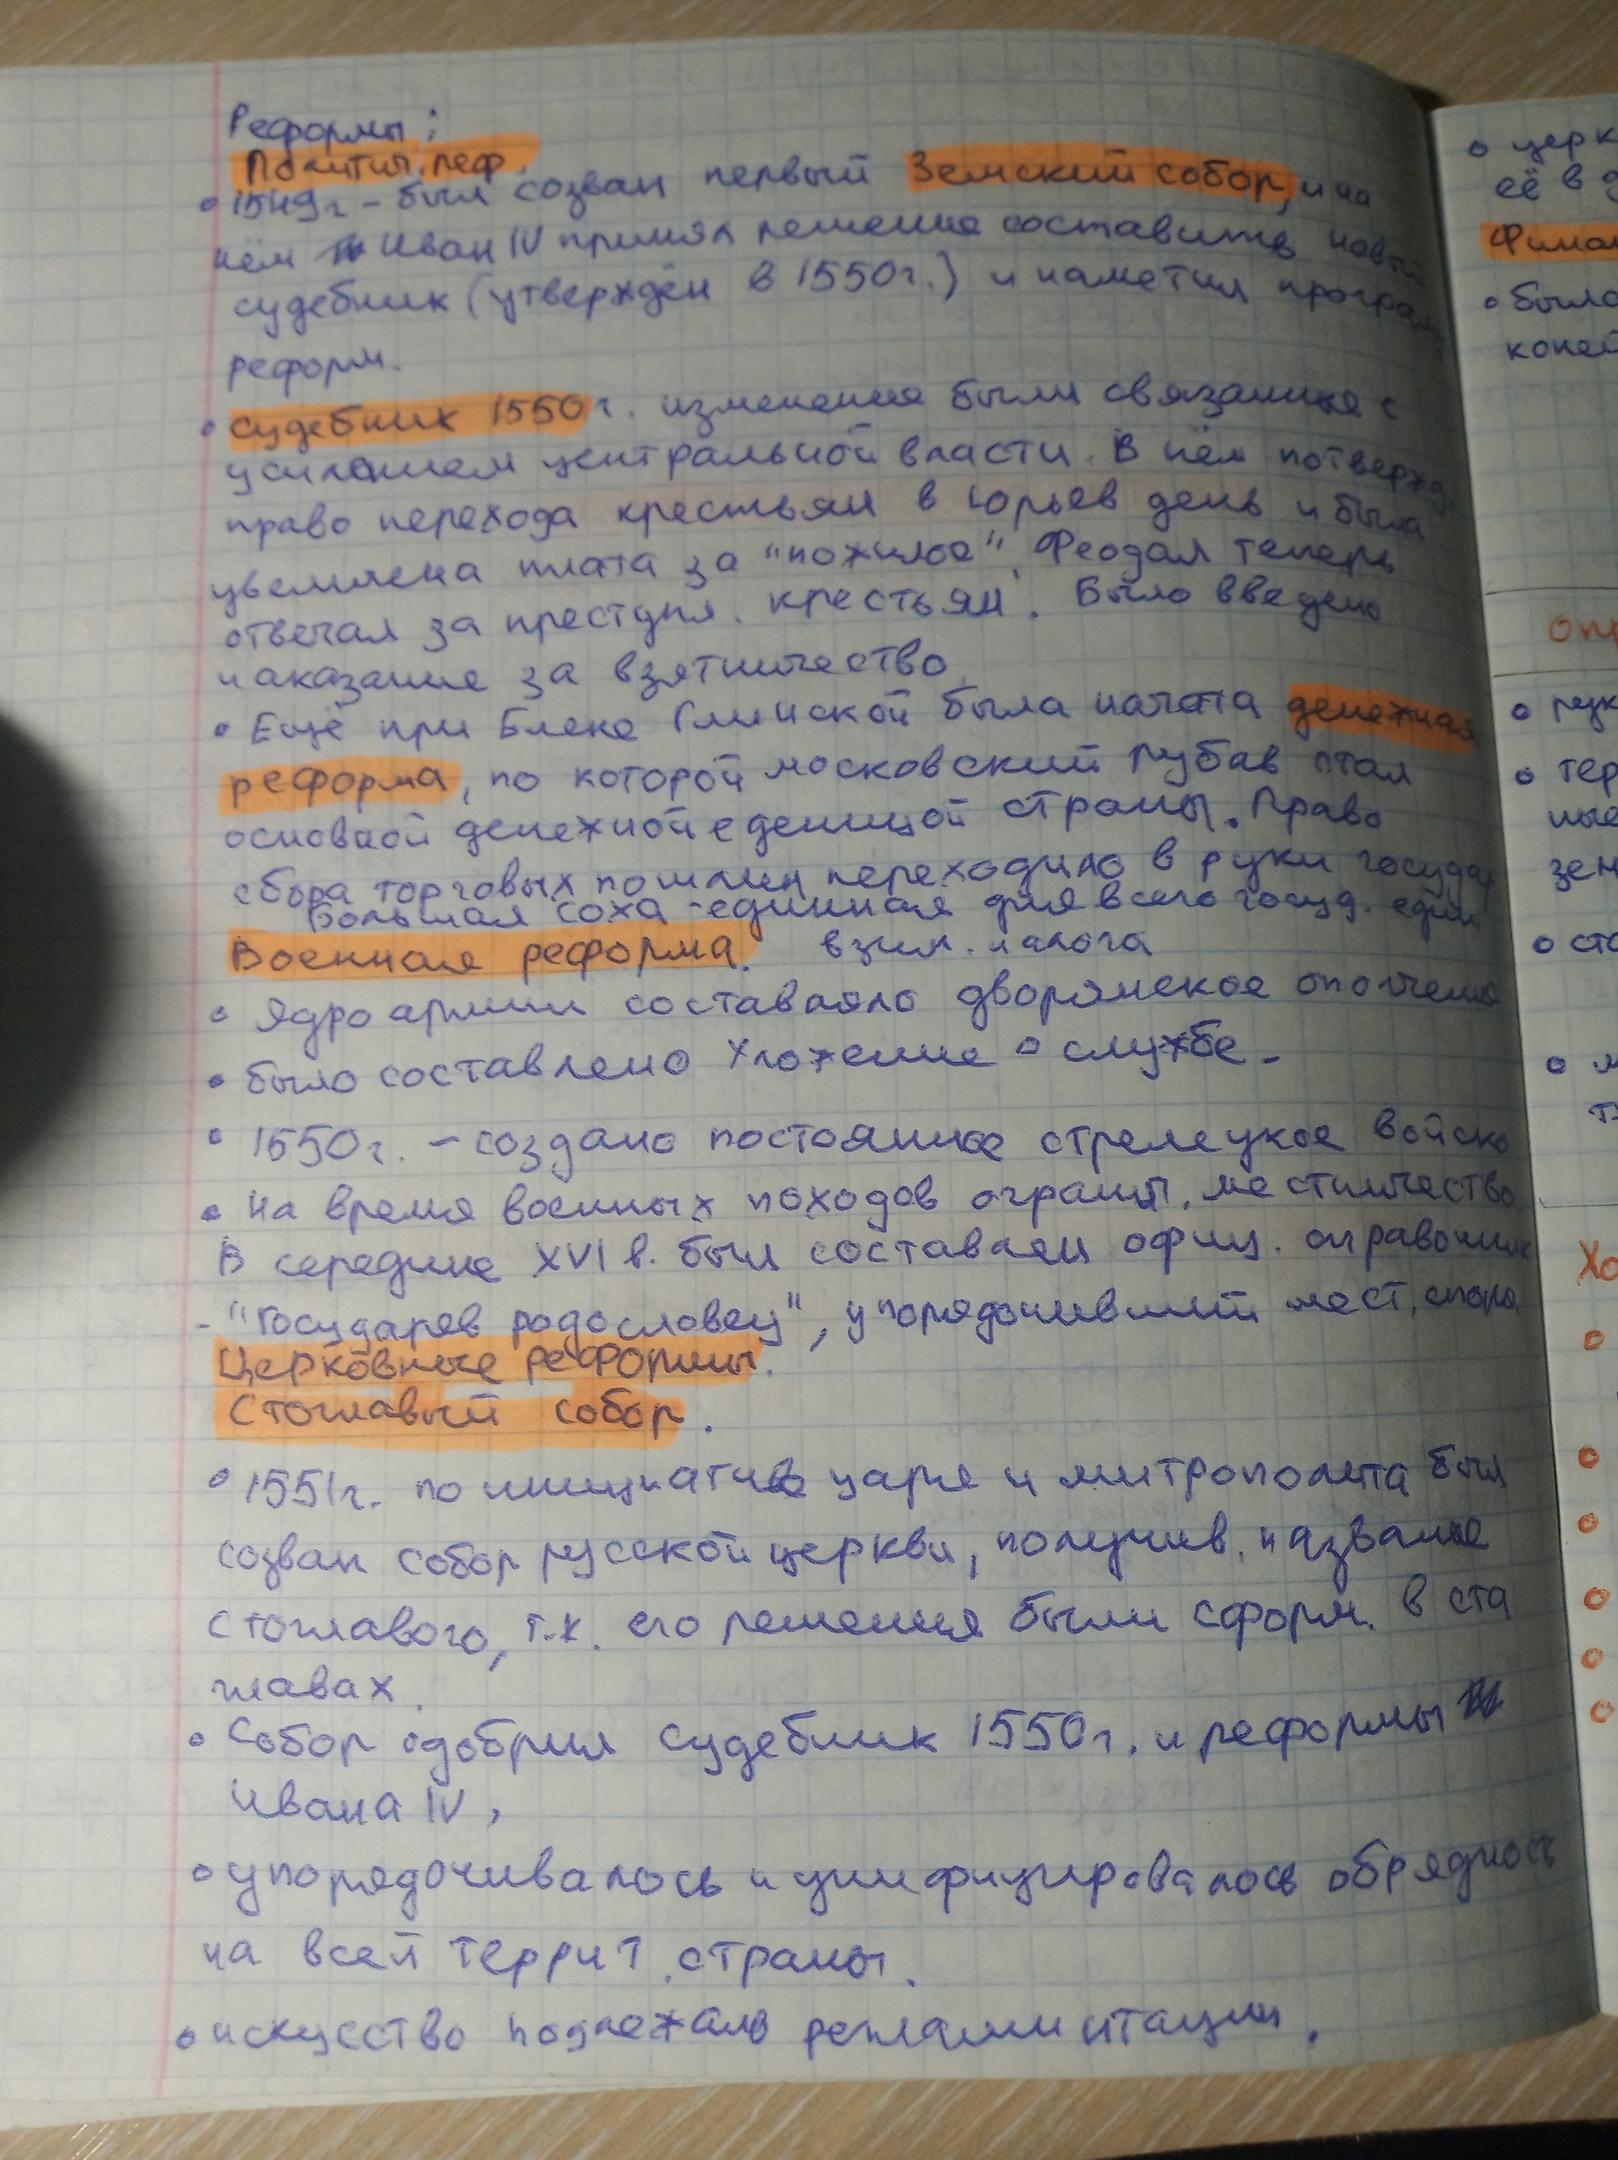 Реформы:
Политич. реф.
• 1549г – был созван первый Земский собор, и на
нём Иван IV принял решение составить новый
судебник (утверждён в 1550г.) и наметил програм
реформ.
• Судебник 1550г. изменения были связанные с
усилением центральной власти. В нём потвержд.
право перехода крестьян в Юрьев день и была
увеличена плата за "пожилое". Феодал теперь
отвечал за преступл. крестьян. Было введено
наказание за взятничество
• Ещё при Елене Глинской была начата денежная
реформа, по которой московский рубль стал
основной денежной еденицой страны. Право
сбора торговых пошлин переходило в руки государ
Большая соха - единная для всего госуд. един.
Военная реформа. взим. налога
• Ядро армии составляло дворянское ополчение
• было составлено Уложение о службе.
• 1550г. – создано постоянное стрелецкое войско
• на время военных походов огранич. местничество
В середине XVI в. был составлен офиц. справочник
- "Государев родословец", упорядочивший мест. споры
Церковные реформы.
Стоглавый собор.
• 1551г. по инициативе царя и митрополита был
созван собор русской церкви, получив. название
Стоглавого, т.к. его решения были сформ. в ста
главах.
• Собор одобрил Судебник 1550г. и реформы
Ивана IV,
• упорядочивалось и унифицировалось обрядность
на всей террит. страны.
• искусство подлежало регламинтации.
• церк
её в
Финан
• было
копей
опр
• рук
• тер
ные
зем
• сто
•
Хо